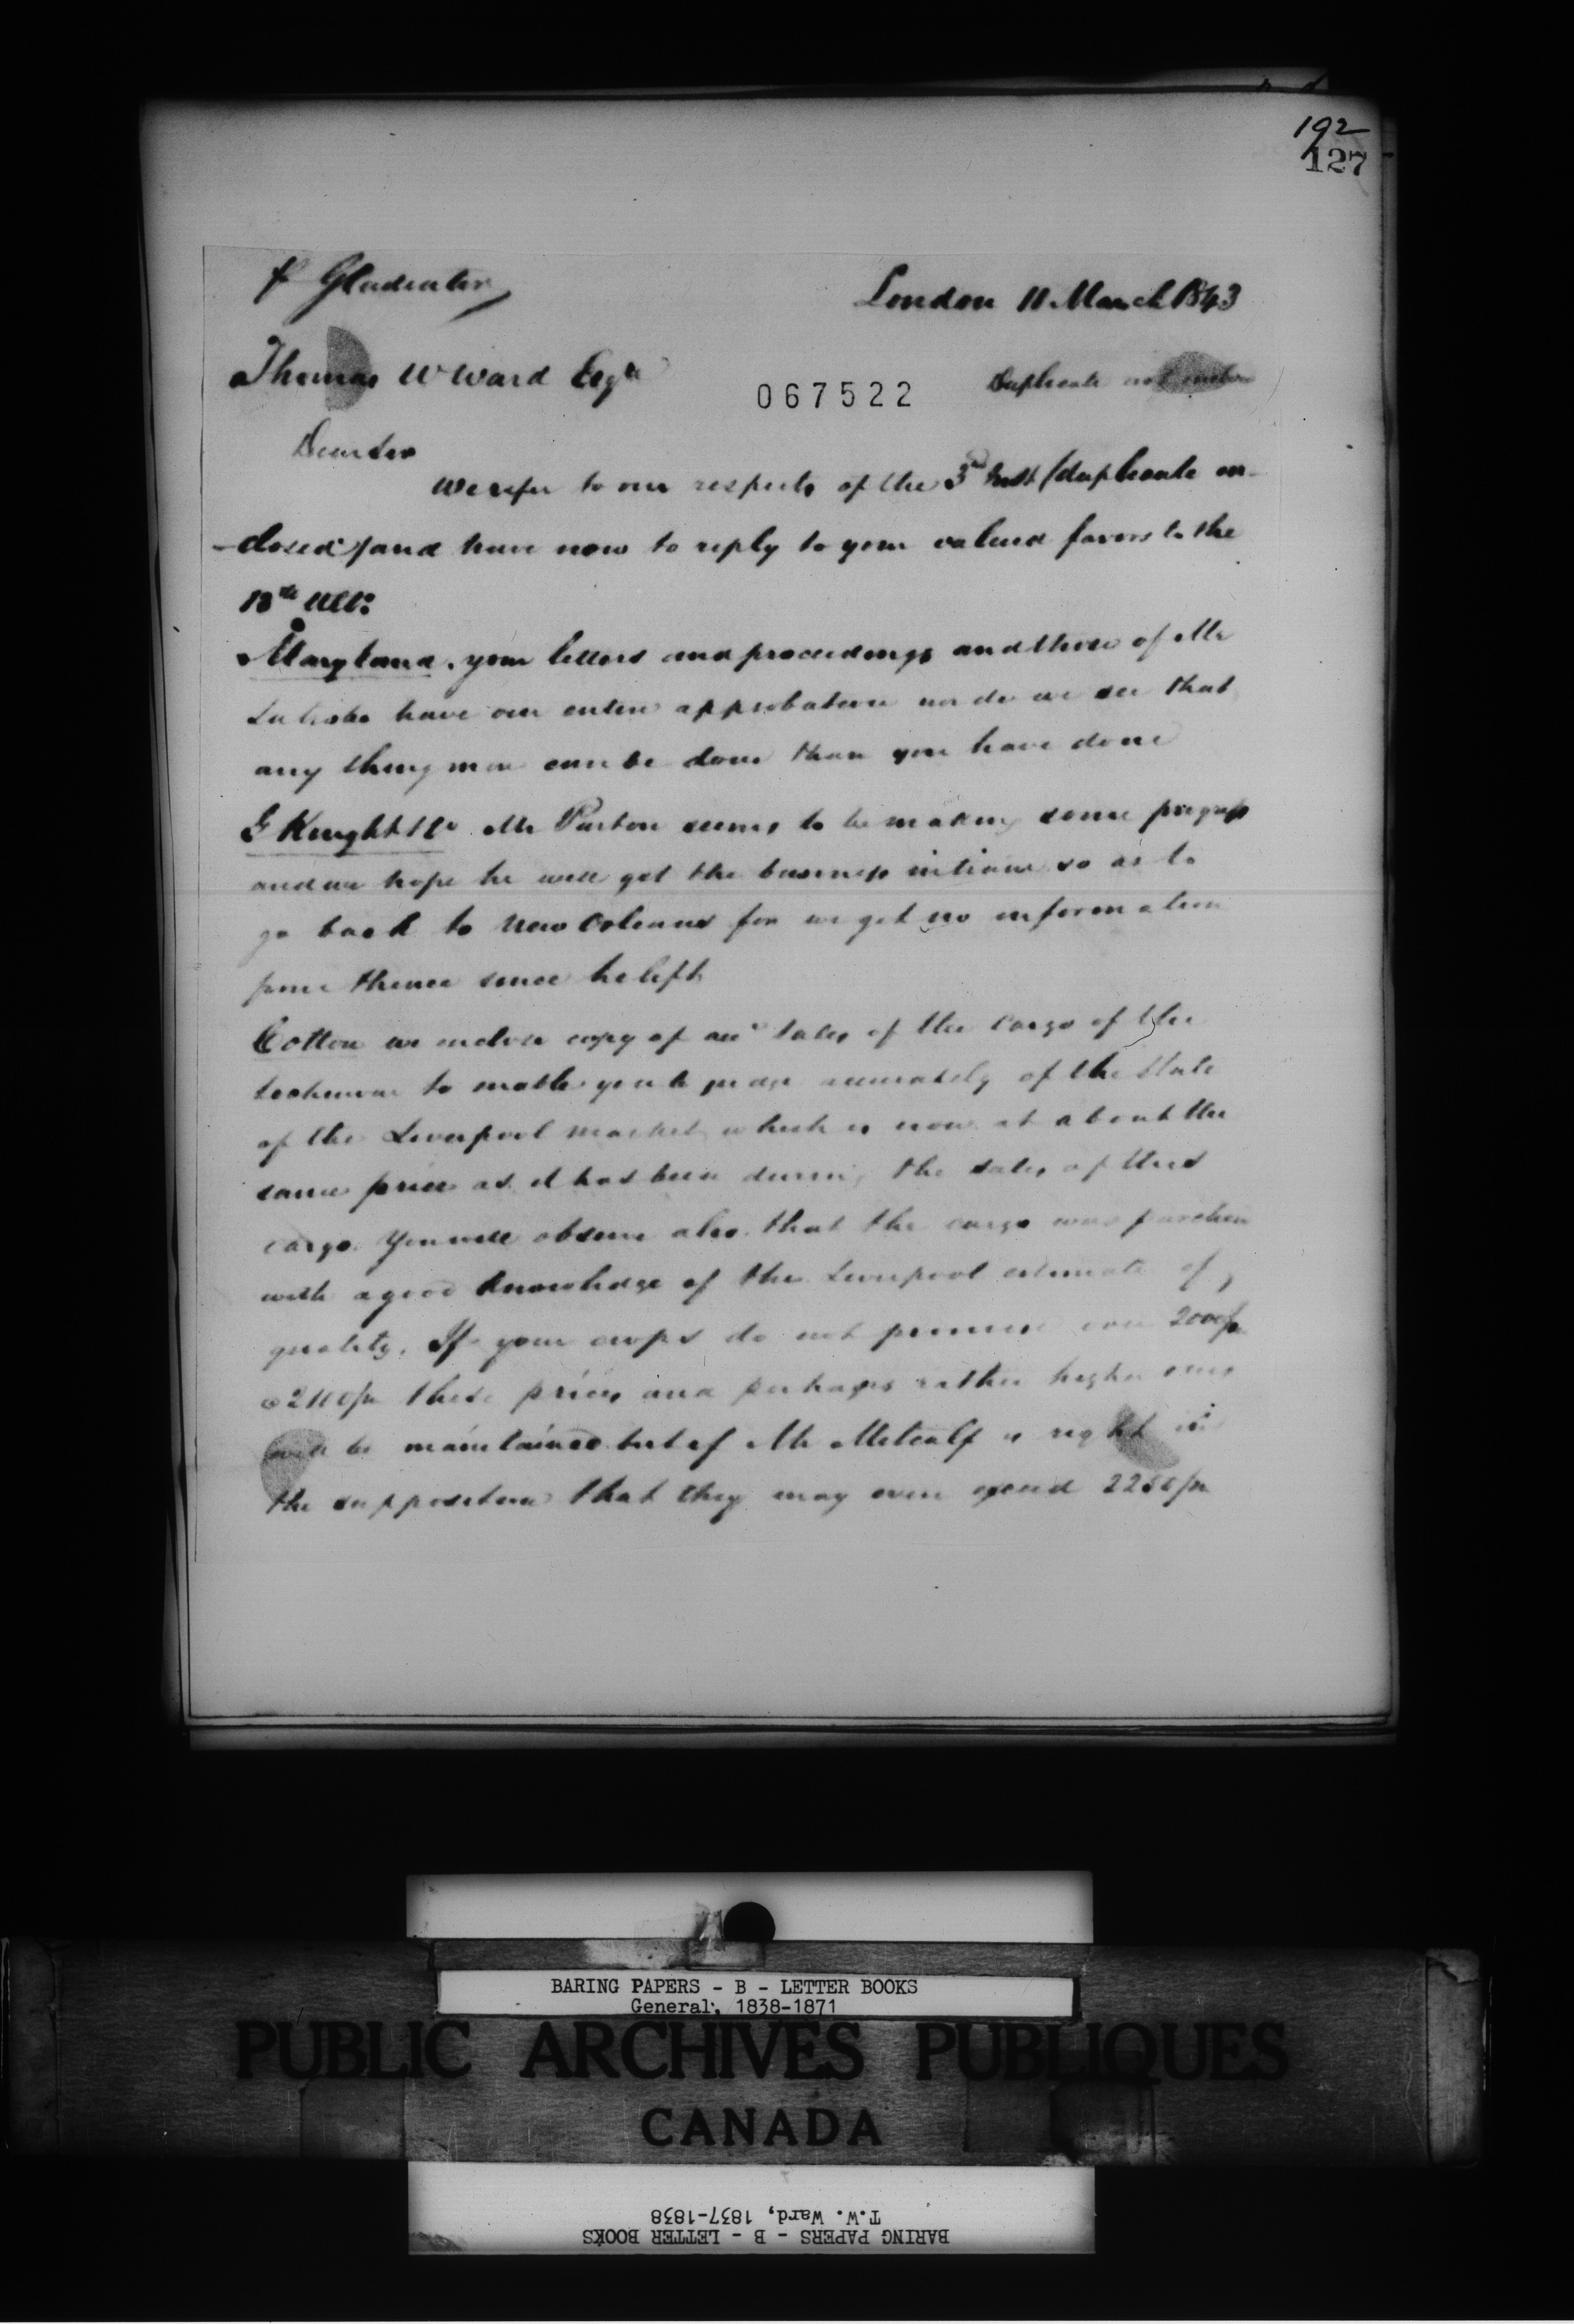 192
127
p Gladiator
London 11 March 1843
Thomas W Ward Esqr
067522
Duplicate not
Dear Sir
We refer to our respects of the 3rd Inst (duplicate en-
-closed) and have now to reply to your valued favors to the
13th Ulto
Maryland. your letters and proceedings and those of Mr
Latrobe have our entire approbation nor do we see that
any thing more can be done than you have done
G Knight & Co Mr Purton seems to be making some progress
and we hope he will get the business in train so as to
go back to New Orleans for we get no information
from thence since he left
Cotton we enclose copy of acct Sales of the Cargo of the
to enable you to judge accurately of the State
of the Liverpool market which is now at about the
same price as it has been during the sales of this
cargo. You will observe also that the cargo was
with a good knowledge of the Liverpool estimate of
quality. If your crops do not promise over 2000/m
a 2100/m these prices and perhaps rather higher ones
will be maintained but if Mr Metcalf is right in
the supposition that they may even exceed 2250/m
BARING PAPERS - B - LETTER BOOKS
General, 1838-1871
PUBLIC ARCHIVES PUBLIQUES
CANADA
BARING PAPERS - B - LETTER BOOKS
T.W. Ward, 1837-1838